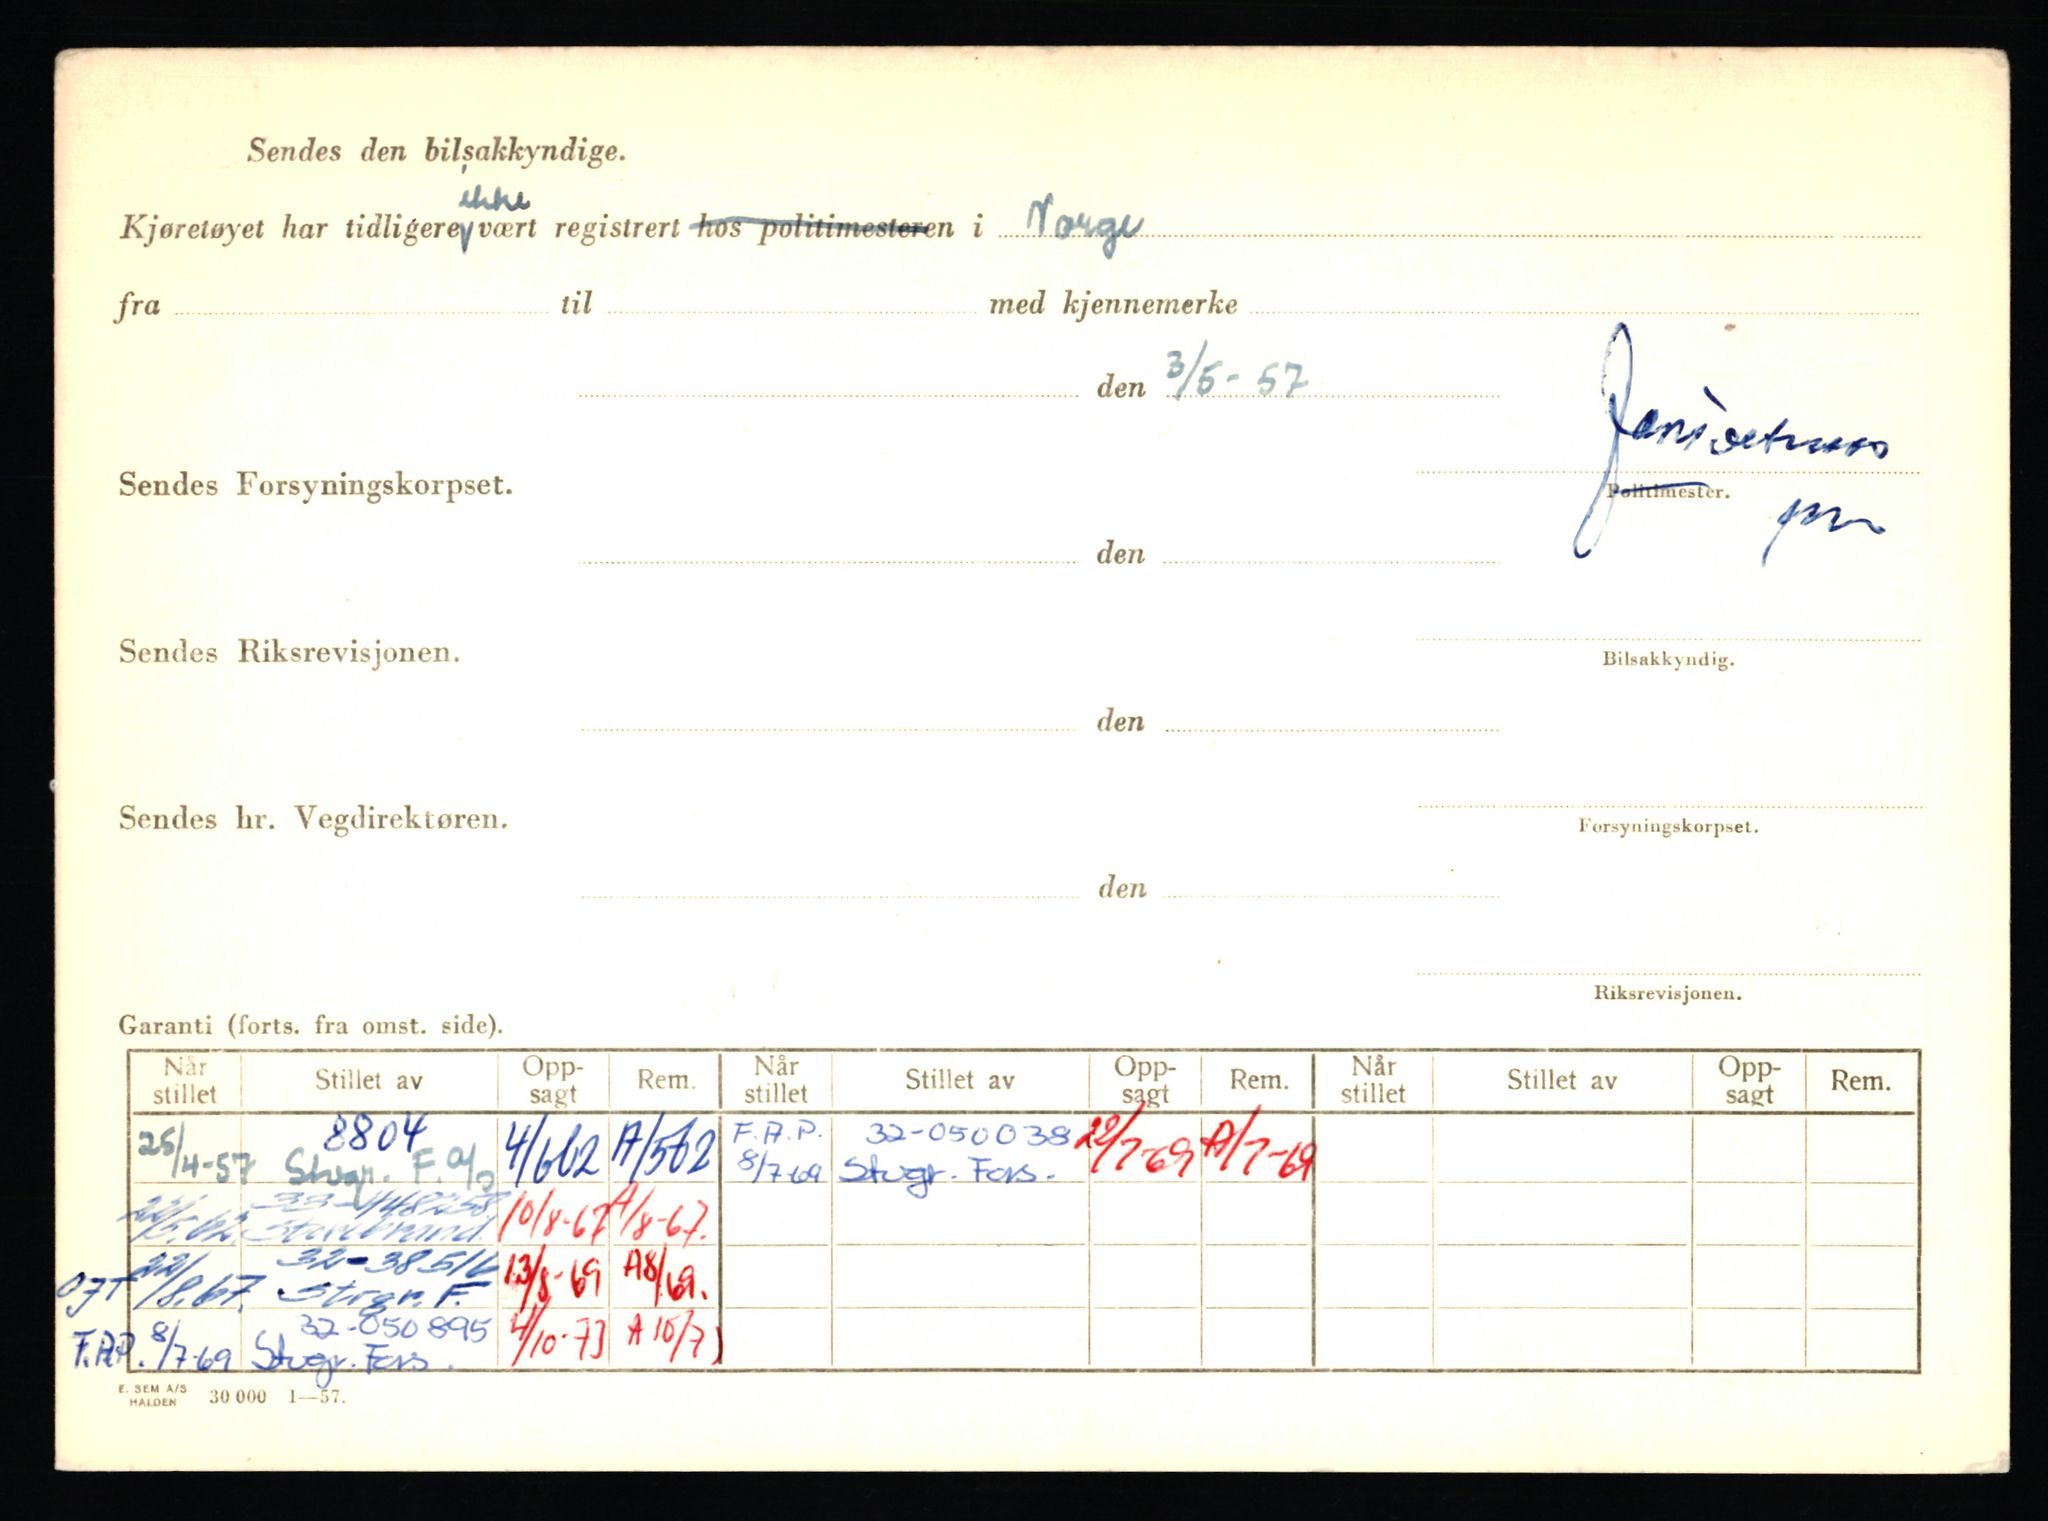 Sendes den bilsakkyndige.
ikke
Kjøretøyet har tidligere vært registrert hos politimesteren i Norge
fra til med kjennemerke
den 3/5-57
Sendes Forsyningskorpset.
Politimester.
den
Sendes Riksrevisjonen.
Bilsakkyndig.
den
Sendes hr. Vegdirektøren.
Forsyningskorpset.
den
Riksrevisjonen.
Garanti (forts. fra omst. side).
Når stillet Stillet av Opp-sagt Rem. Når stillet Stillet av Opp-sagt Rem. Når stillet Stillet av Opp-sagt Rem.
8804 F.A.P. 32-050038
25/4-57 Stvgr. F. a/s 4/662 A/562 8/7-69 Stvgr. Fors. 22/7-69 A/7-69
33-448258
Storebrand. 10/8-67 A/8-67.
22/8.67. 32-38516 13/8-69 A8/69.
OJT Strgr. F.
32-050895
F.A.P. 8/7-69 Stvgr. Fors. 4/10-73 A 10/73
E. SEM A/S
HALDEN 30 000 1—57.